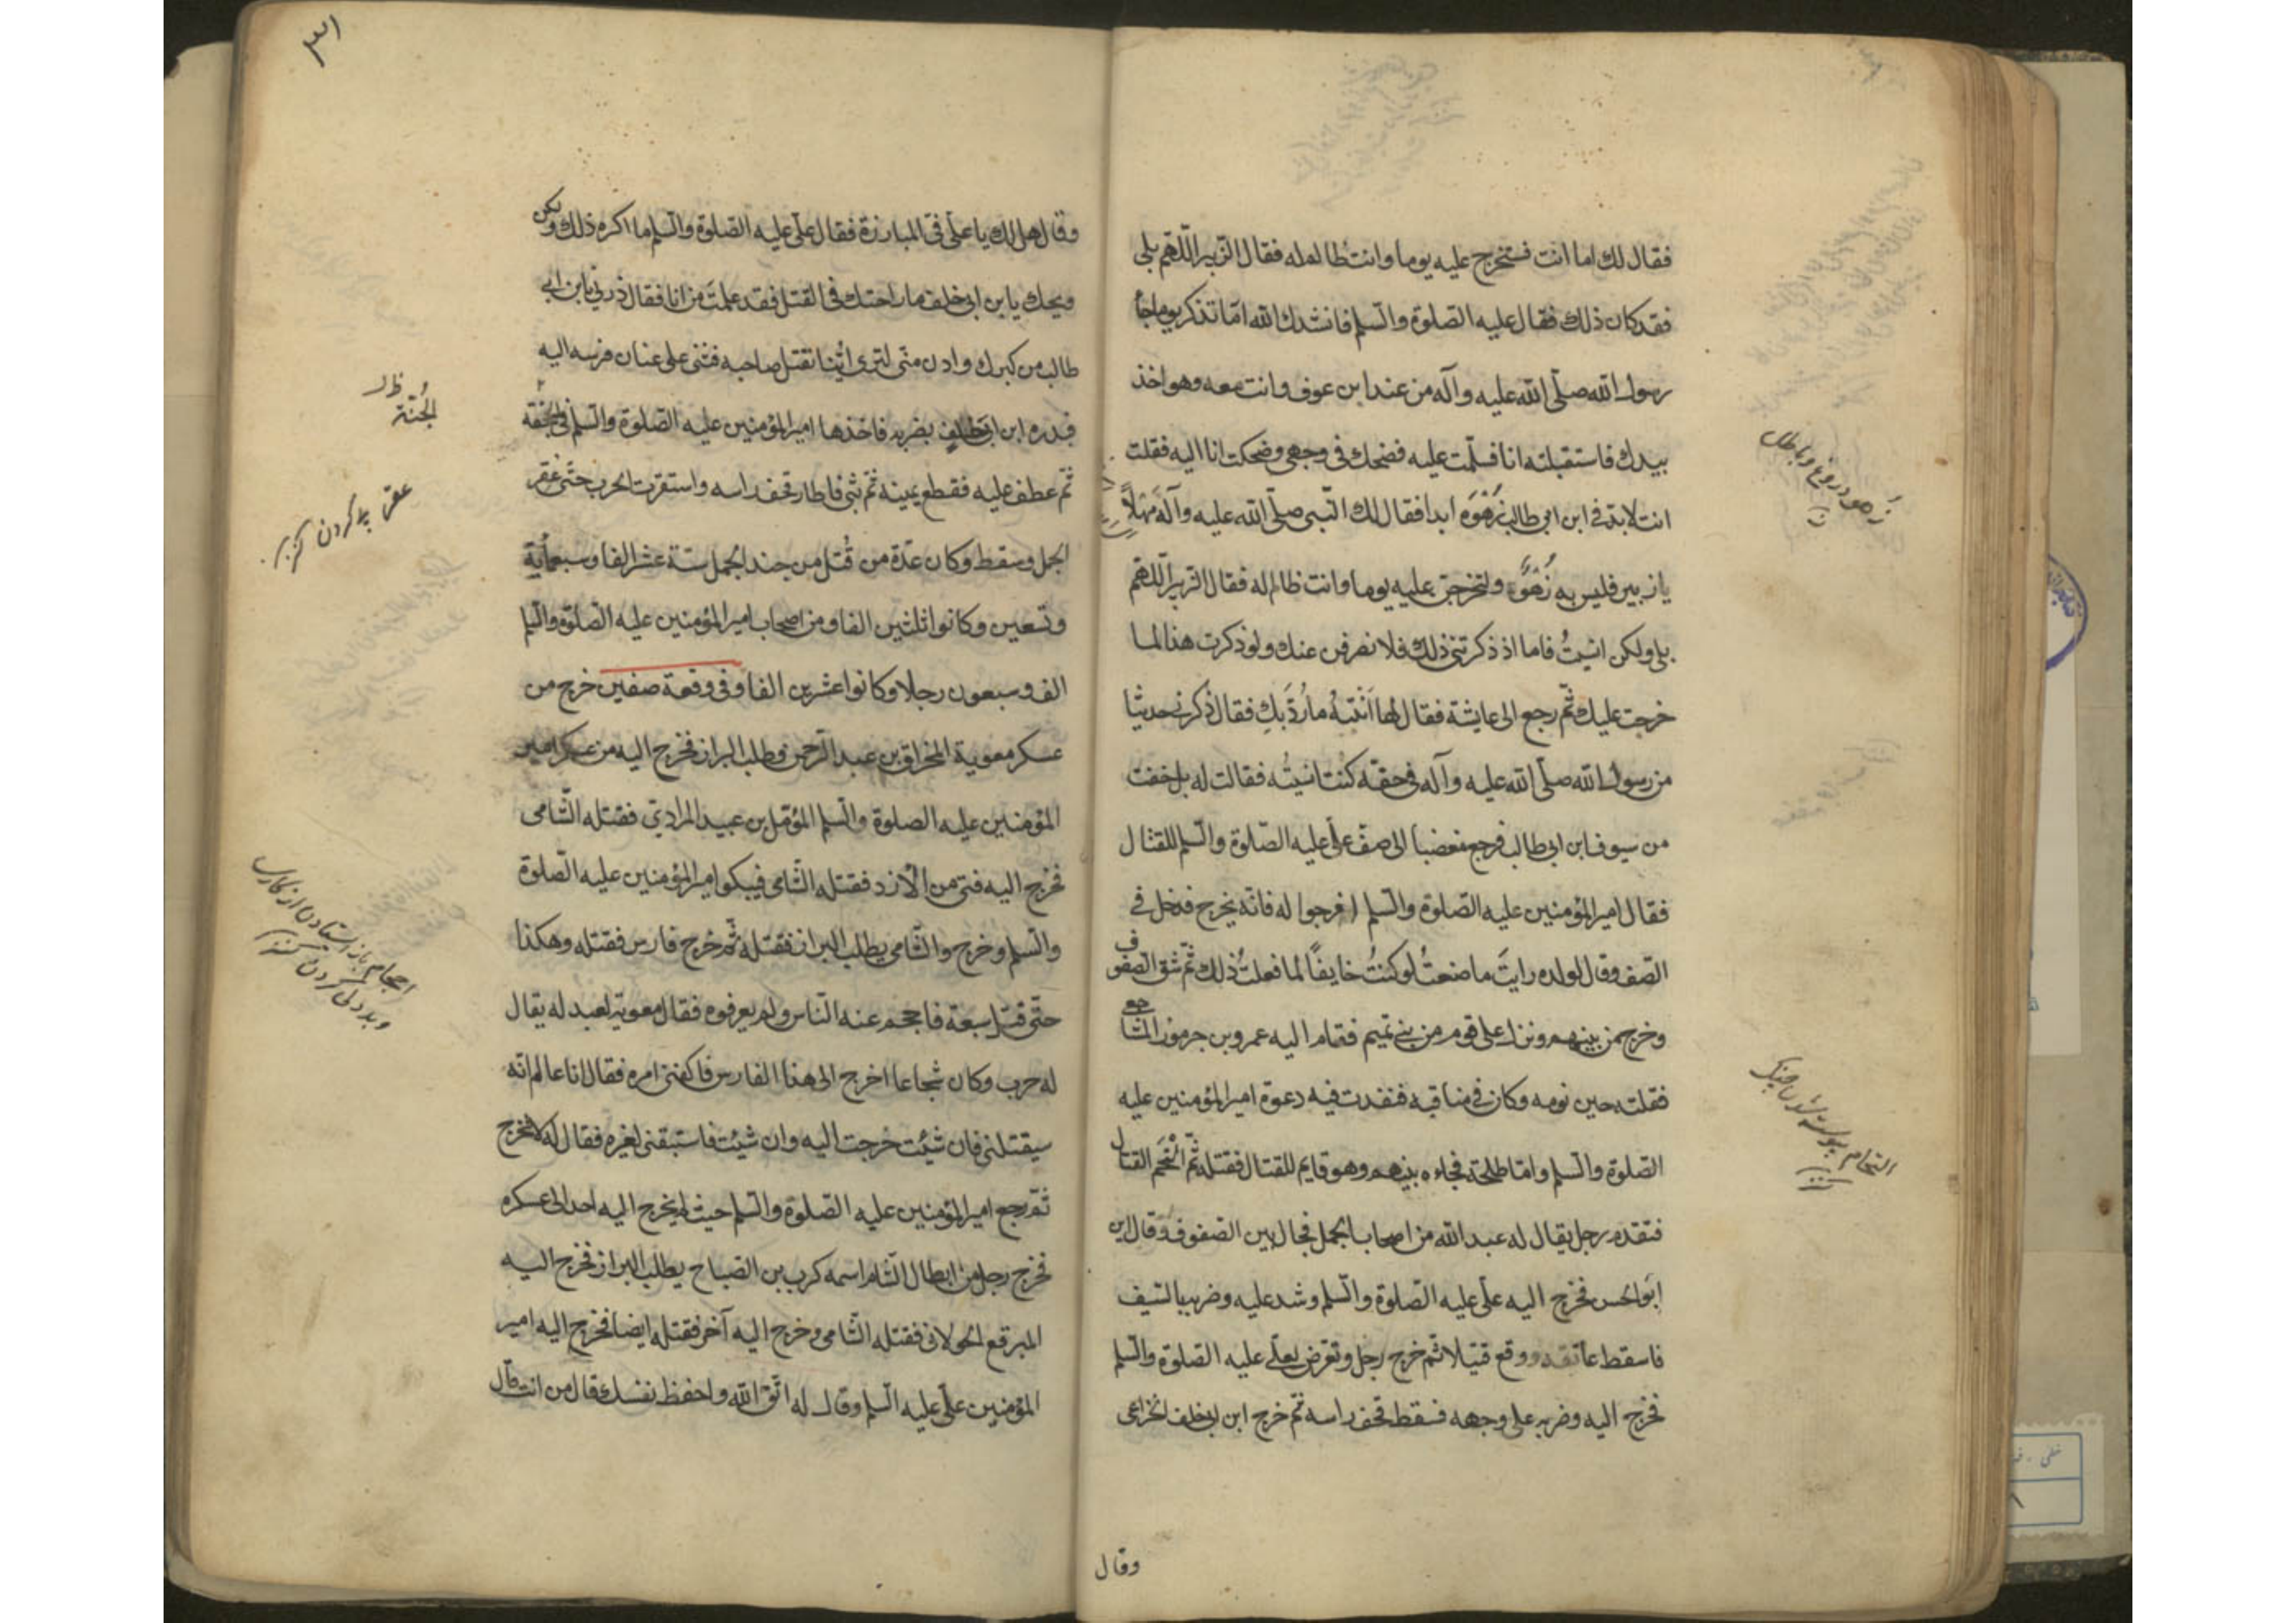 فقال لك اما انت فستخرج عليه يوما وانت ظالم له فقال الزبير اللّهم بلى
فقد كان ذلك فقال عليه الصلوة والسلم فانشدك الله امّا تذكر يوما جاء
رسول الله صلّى الله عليه وآله من عند ابن عوف وانت معه وهو اخذ
بيدك فاستقبلته انا فسلّمت عليه فضحك فى وجهى وضحكت انا اليه فقلت
انت لا يدع ابن ابى طالب زَهْوَه ابدا فقال لك النّبى صلّى الله عليه وآله مَهْلاً
يا زبير فليس به زَهْوٌ ولتخرجن عليه يوما وانت ظالم له فقال الزبير اللّهم
بلى ولكن انسيتُ فاما اذ ذكرتنى ذلك فلانصرفن عنك ولو ذكرت هذا لما
خرجت عليك ثّم رجع الى عايشة فقال لها ما رَدَّ بك فقال ذكرنى حديثا
من رسول الله صلّى الله عليه وآله فى حقّه كنت انسيتُه فقالت له بل خفت
من سيوف ابن ابى طالب فرجع مغضبا الى صفّ علّى عليه الصّلوة والسّلم للقتال
فقال امير المؤمنين عليه الصّلوة والسّلم افرجوا له فانّه يخرج فدخل فى
الصّف وقال لولده رايتَ ما صنعتُ لو كنتُ خايفًا لما فعلتُ ذلك ثّم شق الصفوف
وخرج من بينهم ونزل على قوم من بنى تميم فقام اليه عمرو بن جرموز المشاجعى
فقتله حين نومه وكان فى فنفدت فيه دعوة امير المؤمنين عليه
الصّلوة والسّلم وامّا طلحة فجاءه بينهم وهو قايم للقتال فقتله ثّم الْتَحَم القتال
فتقدم رجل يقال له عبد الله من اصحاب الجمل فجال بين الصفوف وقال اين
ابو الحسن فخرج اليه علّى عليه الصّلوة والسّلم وشد عليه وضربه بالسّيف
فاسقط عاتقه ووقع قتيلا ثم خرج رجل وتعرض لعلّى عليه الصّلوة والسّلم
فخرج اليه وضربه على وجهه فسقط قحف راسه ثم خرج ابن ابى خلف الخزاعى
وقال
زَهو دروغ وباطل
التحام پيوسته شدن جنگ
٣١
وقال هل لك يا علّى فى المبارزة فقال علّى عليه الصّلوة والسّلم ما اكره ذلك ولكن
ويحك يا بن ابى خلف ما راحتك فى القتل فقد علمتَ من انا فقال ذرنى يا بن ابى
طالب من كبرك وادن منّى لترى ايّنا يقتل صاحبه فثنى على عنان فرسه اليه
فبدره ابن ابى خلف بضربه فاخذها امير المؤمنين عليه الصّلوة والسّلم فى الجحفة
ثم عطف عليه فقطع يمينه ثّم ثنى فاطار قحف راسه واستقرت الحرب حتّى عقر
الجمل وسقط وكان عدّة من قُتل من جند الجمل ستّة عشر الفا وسبعمأية
وتسعين وكانوا ثلثين الفا ومن اصحاب امير المؤمنين عليه الصّلوة والسّلم
الف وسبعون رجلا وكانوا عشرين الفا وفى وقعة صفين خرج من
عسكر معوية المخراق بن عبد الرّحمن وطلب البراز فخرج اليه من عسكر امير
المؤمنين عليه الصّلوة والسّلم المؤمّل بن عبيد المرادىّ فقتله الشّامى
فخرج اليه فتى من الأزد فقتله الشّامى امير المؤمنين عليه الصّلوة
والسّلم وخرج والشّامى يطلب البراز فقتله ثّم خرج فارس فقتله وهكذا
حتّى قتل سبعة فاحجم عنه النّاس ولم يعرفوه فقال معوية لعبد له يقال
له حرب وكان شجاعا اخرج الى هذا الفارس فاكفنى امره فقال انا عالم انّه
سيقتلنى فان شئت خرجت اليه وان شئت فاستبقنى لغيره فقال له لا تخرج
ثّم رجع امير المؤمنين عليه الصّلوة والسّلم حيث لم يخرج اليه احد الى عسكره
فخرج رجل من ابطال الشّام اسمه كريب بن الصّباح يطلب البراز فخرج اليه
المبرقع الخولانى فقتله الشّامى وخرج اليه آخر فقتله ايضا فخرج اليه امير
المؤمنين علّى عليه السّلم وقال له اتّق الله واحفظ نفسك قال من انت قال
الجُنّة ظ
عقر پى كردن
احجام باز ايستادن از كارى
وبددلى كردن